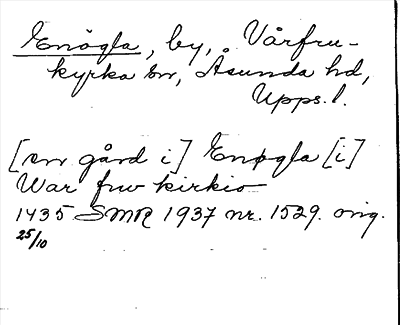 Enögla, by, Vårfru-
kyrka sn, Åsunda hd,
Upps. l.
[en gård i] Enøgla [i]
War frw kirkio
1435 SMR 1937 nr. 1529. orig.
25/10